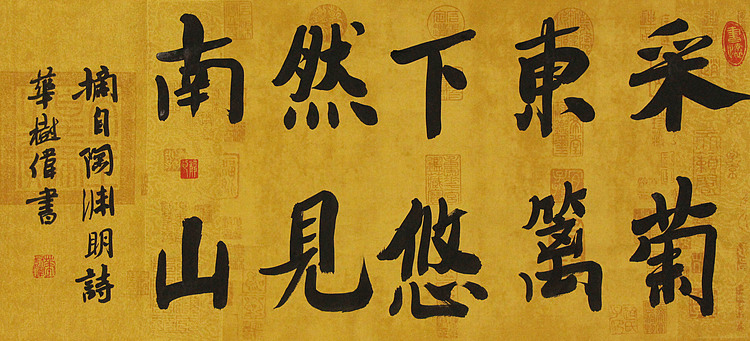 采菊
東籬
下悠
然見
南山
摘自陶渊明詩
華樹偉書